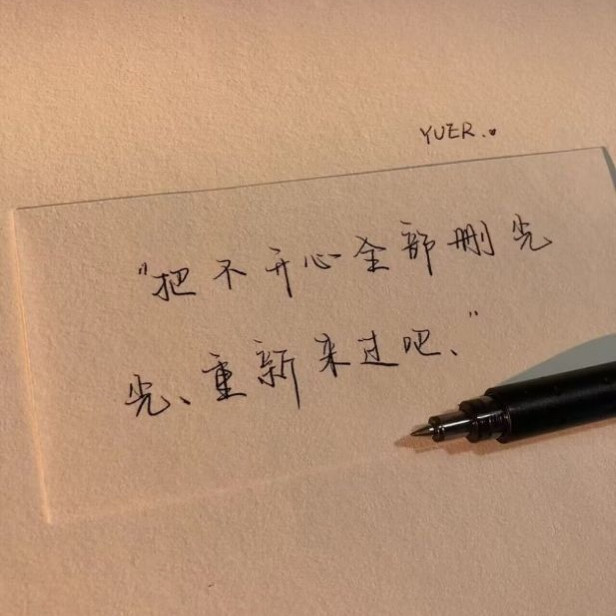 YUER.
"把不开心全部删光
光、重新来过吧、"